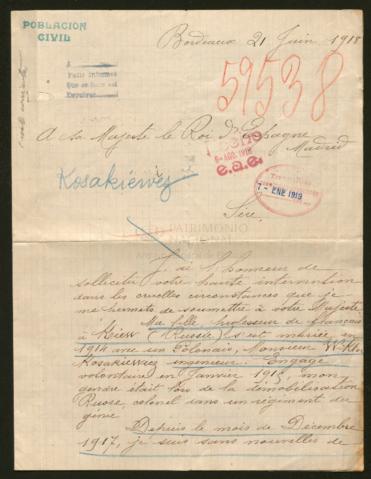 POBLACION
CIVIL
Bordeaux 21 Juin 1918
59538
A Sa Majesté le Roi d'Espagne
Madrid
e.a.e.
7- ENE 1919
Kosakiewez
Sire,
PATRIMONIO
NACIONAL
J'ai l'honneur de
solliciter votre haute intervention
dans les cruelles circonstances que je
me permets de soumettre à votre Majesté
Ma fille, professeur de français
à Kiew (Russie) s'est mariée en
1914 avec un Polonais, Monsieur
Kosakiewez ingénieur. Engagé
volontaire en Janvier 1915, mon
gendre était lors de la démobilisation
Russe, colonel dans un régiment du
génie.
Depuis le mois de Décembre
1917, je suis sans nouvelles de